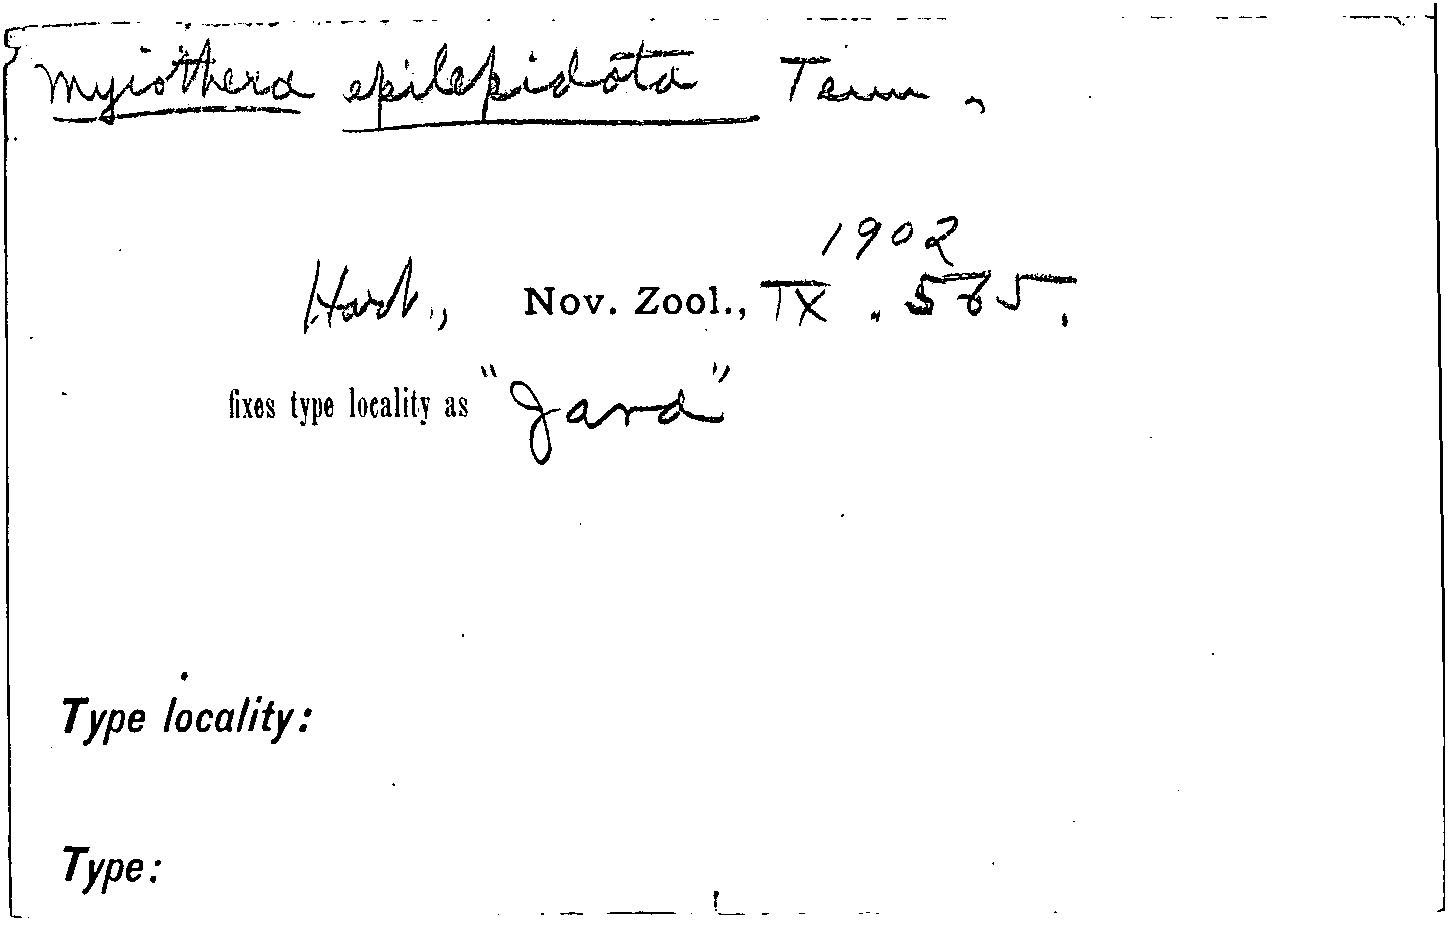 Myiothera epilepidota Tem.
1902
Hart., Nov. Zool., IX. 565.
fixes type locality as "Java"
Type locality:
Type: